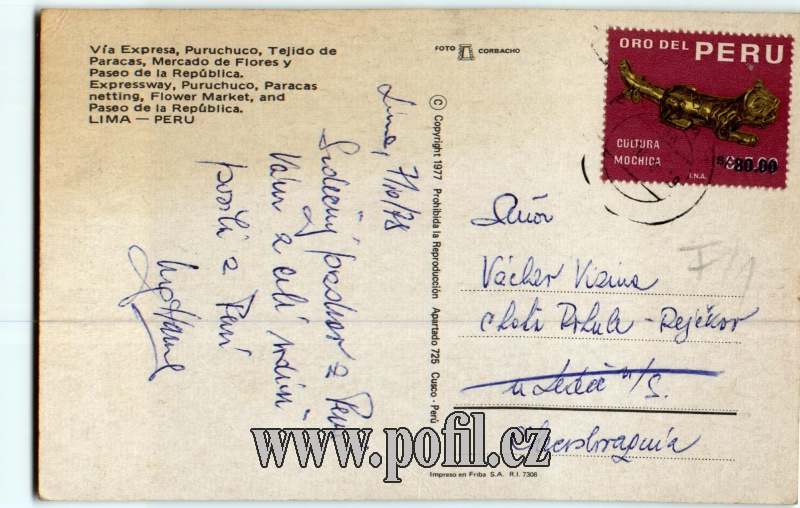 Vía Expresa, Puruchuco, Tejido de
Paracas, Mercado de Flores y
Paseo de la República.
Expressway, Puruchuco, Paracas
netting, Flower Market, and
Paseo de la República.
LIMA — PERU
FOTO CORBACHO
© Copyright 1977 Prohibida la Reproducción Apartado 725 Cusco - Perú
Impreso en Friba S.A. R.I. 7306
ORO DEL PERU
CULTURA
MOCHICA
80.00
I.N.A.
Lima, 7/10/78
Srdečný pozdrav z Peru
Vám a celé rodině
posílá z Peru
Señor
Václav
u Ledče n/S.
Checoslovaquia
www.pofil.cz